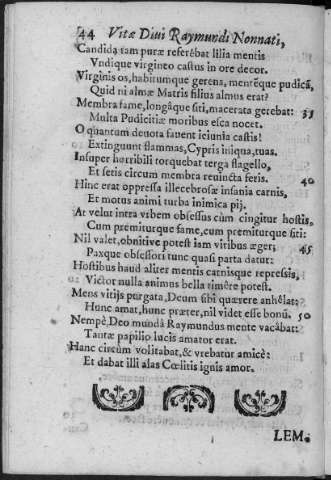 44 Vitæ Diui Raymundi Nonnati,
Candida tam puræ referēbat lilia mentis
Vndique virgineo castus in ore decor.
Virginis os, habitumque gerens, mentēque pudicā,
Quid ni almæ Matris filius almus erat?
Membra fame, longāque siti, macerata gerebat: 35
Multa Pudicitiæ moribus esca nocet.
O quantum deuota fauent ieiunia castis!
Extinguunt flammas, Cypris iniqua, tuas.
Insuper horribili torquebat terga flagello,
Et setis circum membra reuincta feris. 40
Hinc erat oppressa illecebrosæ insania carnis,
Et motus animi turba inimica pij.
At velut intra vrbem obsessus cùm cingitur hostis,
Cum premiturque fame, cum premiturque siti:
Nil valet, obnitive potest iam viribus æger; 45
Paxque obsessori tunc quasi parta datur:
Hostibus haud aliter mentis carnisque repressis,
Victor nulla animus bella timêre potest.
Mens vitijs purgata, Deum sibi quærere anhêlat;
Hunc amat, hunc præter, nil videt esse bonū. 50
Nempè Deo mundâ Raymundus mente vacâbat:
Tantæ papilio lucis amator erat.
Hanc circùm volitabat, & vrebatur amicè:
Et dabat illi alas Cœlitis ignis amor.
LEM.